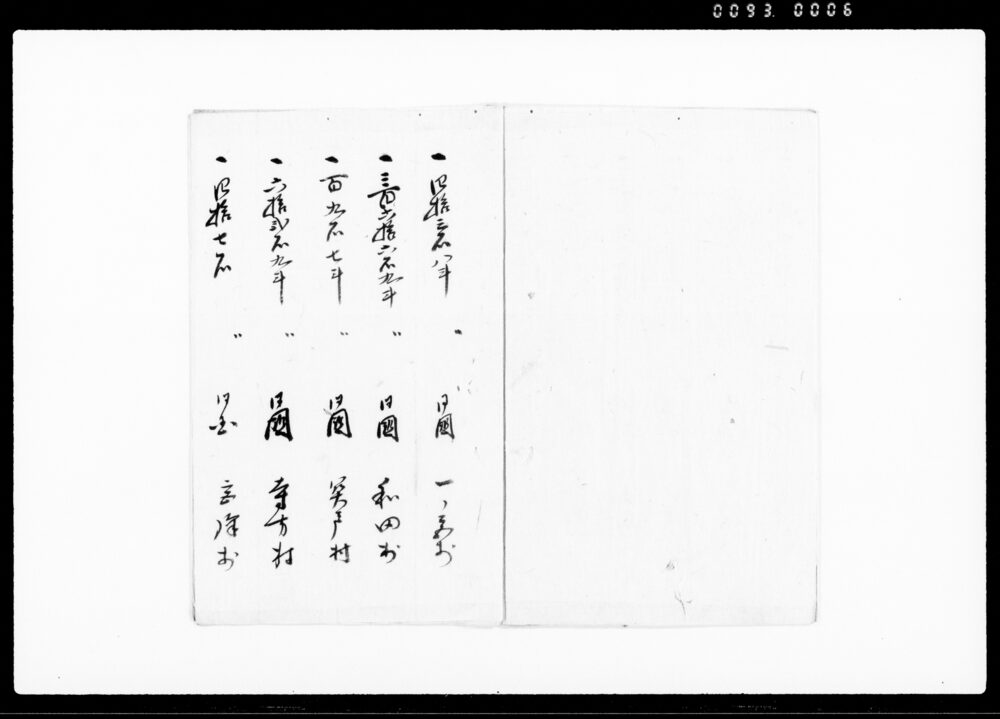 0093 0006
一四拾三石八斗 〃 同國 一ノ宮村
一三百六拾六石九斗 〃 同國 和田村
一百九石七斗 〃 同國 関戸村
一六拾弐石九斗 〃 同國 寺方村
一四拾七石 〃 同国 村